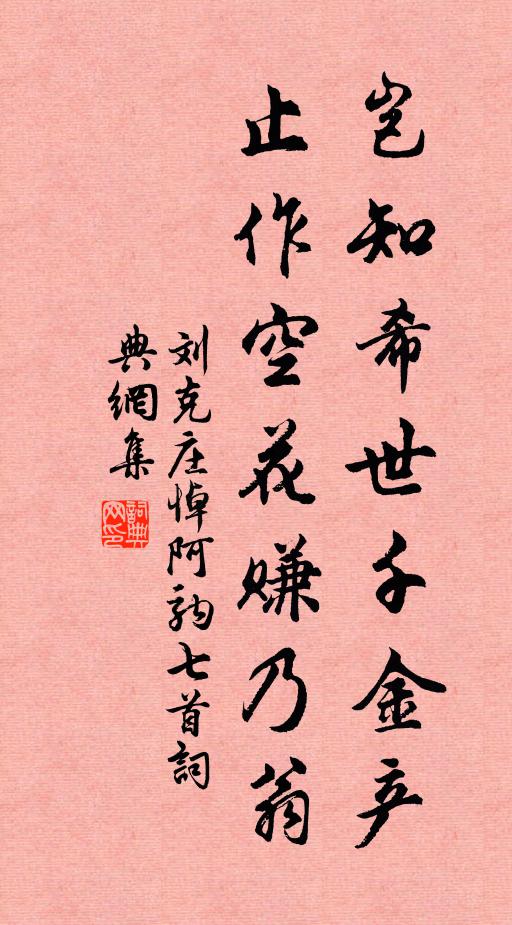 岂知希世千金产
止作空花赚乃翁
刘克庄悼阿驹七首詞
典網集
詞典
网印